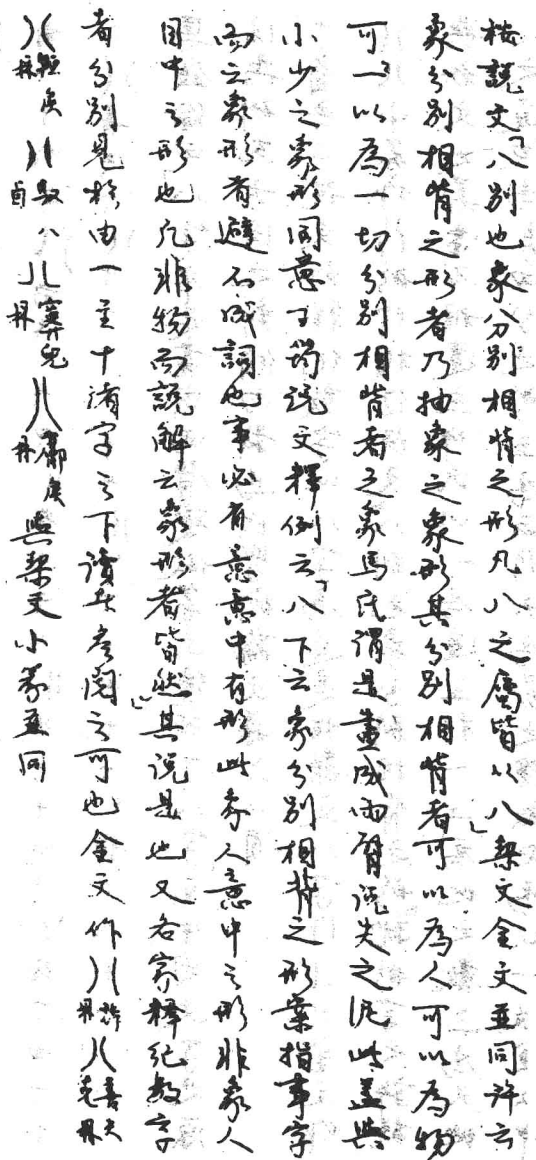 按說文「八別也象分別相背之形凡八之屬皆从八」栔文金文並同許云
象分別相背之形者乃抽象之象形其分別相背者可以為人可以為物
可以為一切分別相背者之象馬氏謂是畫成兩臂說失之泥此蓋與
小少之象形同意王筠說文釋例云「八下云象分別相背之形案指事字
而云象形者避不成詞也事必有意意中有形此象人意中之形非象人
目中之形也凡非物而說解云象形者皆然」其說是也又各家釋紀數字
者分別見於由一至十諸字之下讀者參閱之可也金文作 八 八善夫克鼎
八 八 八 八 與栔文小篆並同